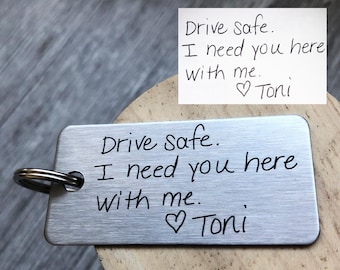 Drive safe.
I need you here
with me.
♡ Toni
Drive safe.
I need you here
with me.
♡ Toni